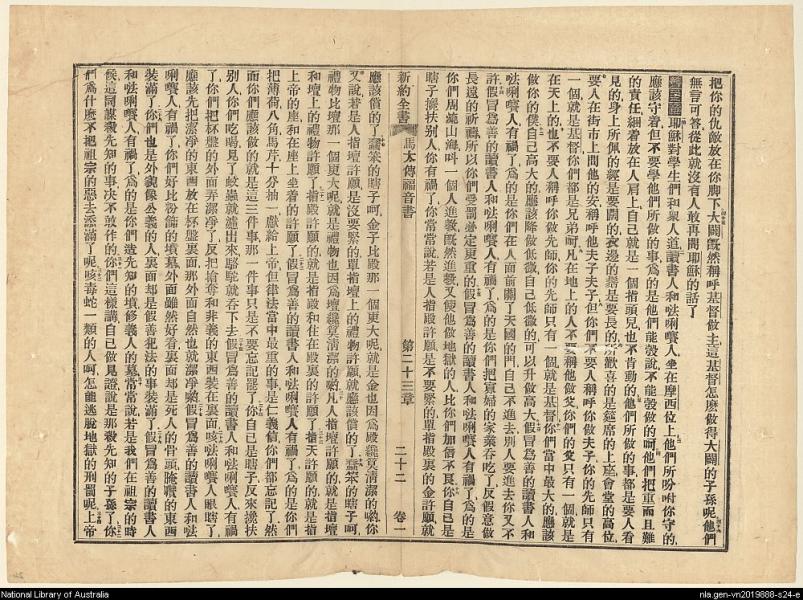 把你的仇敵放在你脚下大闢旣然稱呼基督做主這基督怎麽做得大闢的子孫呢他們
無言可答從此就沒有人敢再問耶穌的話了
耶穌對學生們和衆人道讀書人和𠵽唎㘔人坐在摩西位上他們所吩咐你守的
應該守着但不要學他們所做的事爲的是他們能彀說不能彀做的呵他們把重而且難
的責任綑着放在人肩上自己就是一個指頭兒也不肯動的他們所做的事都是要人看
見的身上所佩的經是要闊的衣邊的繐是要長的所歡喜的是筵席的上座會堂的高位
要人在街市上問他的安稱他夫子夫子但你們不要人稱呼你做夫子你的先師只有
一個就是基督你們都是兄弟呵凡在地上的人不要稱他做父你們的父只有一個就是
在天上的也不要人稱呼你做先師你的先師只有一個就是基督你們當中最大的應該
做你的僕自己高大的應該降做低微自己低微的可以升做高大假冒爲善的讀書人和
𠵽唎㘔人有禍了爲的是你們在人面前關了天國的門自己不進去別人要進去你又不
許假冒爲善的讀書人和𠵽唎㘔人有禍了爲的是你們把寡婦的家業吞吃了反假意做
長遠的祈禱所以你們受罰必定更重的假冒爲善的讀書人和𠵽唎㘔人有禍了爲的是
你們周範山海叫一個人進敎旣然進敎又使他做地獄的人比你們加倍不良你自己是
瞎子攙扶別人你有禍了你常常說若是人指殿許願是不要緊的單指殿裏的金許願就
新約全書 馬太傳福音書 第二十三章 二十二 卷一
應該償的了蠢笨的瞎子呵金子比殿那一個更大呢就是金也因爲殿纔算淸潔的喲你
又說若是人指壇許願是沒要緊的單指壇上的禮物許願就應該償的了蠢笨的瞎子呵
禮物比壇那一個更大呢就是禮物也因爲壇纔算淸潔的喲凡人指壇許願的就是指壇
和壇上的禮物許願了指殿許願的就是指殿和住在殿裏的許願了指天許願的就是指
上帝的座和在座上坐着的許願了假冒爲善的讀書人和𠵽唎㘔人有禍了爲的是你們
把薄荷八角馬芹十分抽一獻給上帝但律法當中最重的事是仁義信你們都忘記了然
而你們應該做的就是這三件事那一件事只是不要忘記罷了你自己是瞎子反來攙扶
別人你們吃喝見了蚊蟲就濾出來駱駝就吞下去假冒爲善的讀書人和𠵽唎㘔人有禍
了你們把杯盤的外面弄潔淨了反把搶奪和非義的東西裝在裏面咳𠵽唎㘔人眼瞎了
應該先把潔淨的東西放在杯盤裏面那外面自然也就潔淨喲假冒爲善的讀書人和𠵽
唎㘔人有禍了你們好比粉儒的墳墓外面雖然好看裏面却是死人的骨頭腌臢的東西
裝滿了你們也是外貌像公義的人裏面却是假善犯法的事裝滿了假冒爲善的讀書人
和𠵽唎㘔人有禍了爲的是你們造先知的墳修義人的墓常常說若是我們在祖宗的時
候這同謀殺先知的事決不敢作的你們這樣講自己做見證說是那殺先知的子孫了你
們爲什麽不把祖宗的惡去添滿了呢咳毒蛇一類的人呵怎能逃脫地獄的刑罰呢上帝
National Library of Australia
nla.gen-vn2019888-s24-e